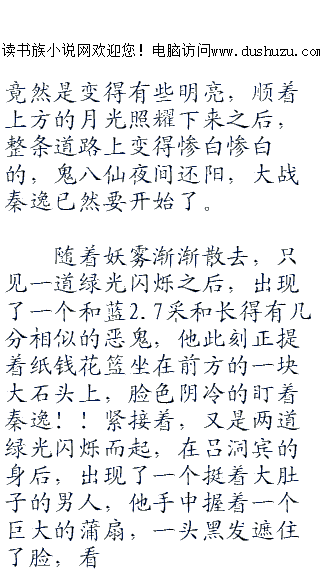 读书族小说网欢迎您！电脑访问www.dushuzu.com
竟然是变得有些明亮，顺着
上方的月光照耀下来之后，
整条道路上变得惨白惨白
的，鬼八仙夜间还阳，大战
秦逸已然要开始了。
随着妖雾渐渐散去，只
见一道绿光闪烁之后，出现
了一个和蓝2.7采和长得有几
分相似的恶鬼，他此刻正提
着纸钱花篮坐在前方的一块
大石头上，脸色阴冷的盯着
秦逸！！紧接着，又是两道
绿光闪烁而起，在吕洞宾的
身后，出现了一个挺着大肚
子的男人，他手中握着一个
巨大的蒲扇，一头黑发遮住
了脸，看